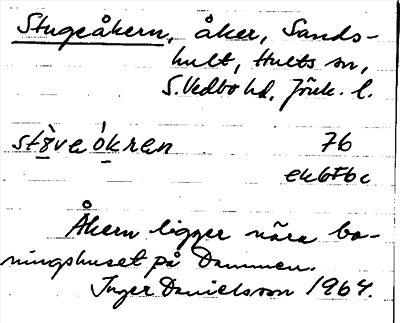 Stugeåkern, åker, Sands-
hult, Hults sn,
S. Vedbo hd, Jönk. l.
76
ek6F6c
Åkern ligger nära bo-
ningshuset på Dammen.
Inger Danielsson 1964.